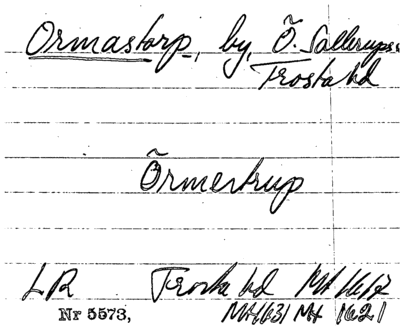 Ormastorp, by, Õ. Sallerups s
Frosta hd
Õrmestrup
LR Frosta hd Mt 1617
Nr 5573, Mt 1631 Mt 1621